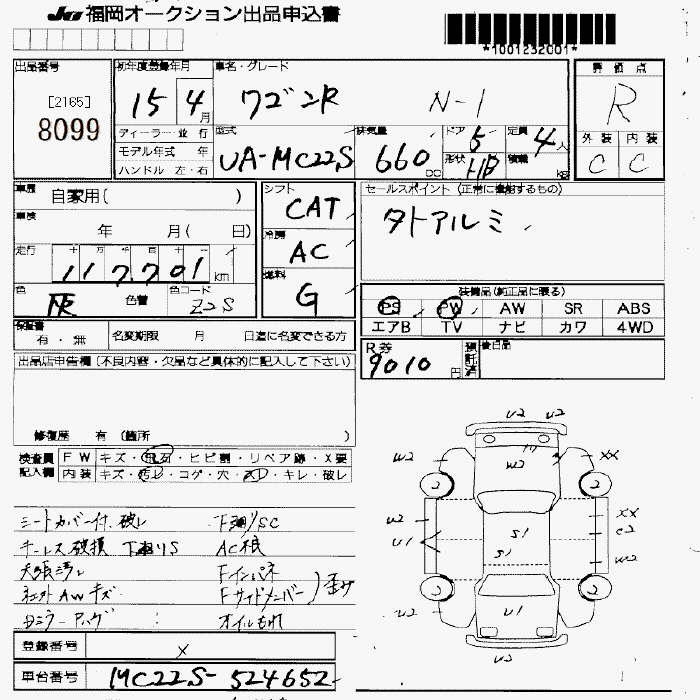 JU 福岡オークション出品申込書
*1001232001*
出品番号
[2165]
8099
初年度登録年月
15 4 月
車名・グレード
ワゴンR N-1
評価点
R
ディーラー 並行
モデル年式 年
ハンドル 左・右
型式
UA-MC22S
排気量
660 cc
ドア
5
形状
H/B
定員
4 人
積載
kg
外装 内装
C C
車歴
自家用( )
車検
年 月( 日)
走行
117,701 km
色
色替
色コード
Z2S
シフト
CAT
冷房
AC
燃料
G
セールスポイント (正常に機能するもの)
タトアルミ
装備品(純正品に限る)
PS PW AW SR ABS
エアB TV ナビ カワ 4WD
保証書
有・無
名変期限 月 日迄に名変できる方
R券
9010 円
預託済
後日品
出品店申告欄(不良内容・欠品など具体的に記入して下さい)
修復歴 有 (箇所 )
検査員
記入欄
FW キズ・飛石・ヒビ割・リペア跡・X要
内装 キズ・汚レ・コゲ・穴・スレ・キレ・破レ
シートカバー付 破レ 下廻りSC
AC根
天張汚レ Fインパネ
AWキズ Fサイドメンバー 歪み
オイルもれ
登録番号
X
車台番号
MC22S-524652
U2 U2
W2 W2 XX
2 2
U2 XX
U1 S1 C2
S1 W2
2 2
U2 U1 W2
U2